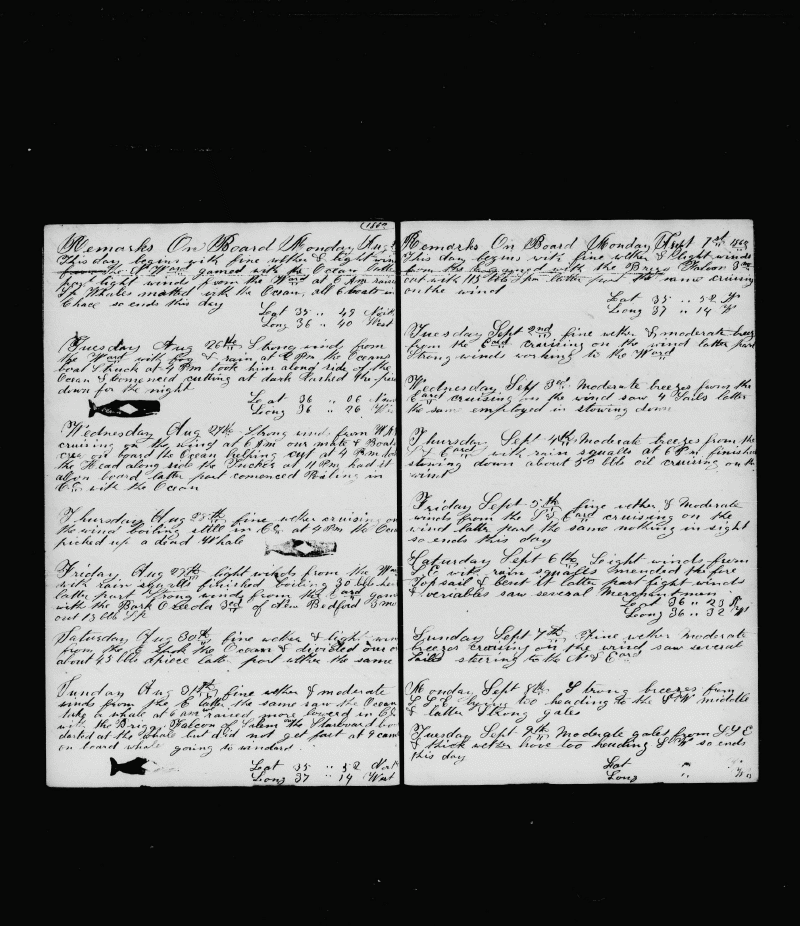 1862
Remarks On Board Monday Aug
This day begins with fine wether & light win
from the Ward gamed with the Ocean latter
part light winds from the Ward at 6 Am raised
Sp Whales mated with the Ocean, all 6 boats in
Chace so ends this day
Lat 35 " 49 North
Long 36 " 40 West
Tuesday Aug 26th Strong winds from
the Ward with fog & rain at 2 Pm the Oceans
boat Struck at 4 Pm took him along side of the
Ocean & comenced cutting at dark lashed the
down for the night
Lat 36 " 06 N
Long 36 " 26 W
Wednesday Aug 27th Strong wind from
cruising on the wind at 6 Am our mate & Boats
crew on board the Ocean helping cut at 4 Pm
the Head along side the Tucker at 11 Pm had it
all on board latter part comenced Boiling in
Co with the Ocean
Thursday Aug 28th fine wether cruising on
the wind boiling still in Co at 4 Pm the Ocean
picked up a dead Whale
Friday Aug 29th light winds from the
with rain squalls finished boiling 30
latter part strong winds from the Eard gam
with the Bark Leeda of New Bedford 3 mo
out 15 bls Sp
Saturday Aug 30th fine wether & light win
from the E Took the Ocean & divided our
about 45 bbls apiece latter part wether the same
Sunday Aug 31st fine wether & moderate
winds from the E latter the same saw the Ocean
take a whale at 6 am raised more lowerd in Co
with the Brigg Falcon of Salem the Starboard bo
darted at the whale but did not get fast at 9 came
on board whale going to windard
Lat 35 " 52 Nort
Long 37 " 14 West
Remarks On Board Monday Sept 1st 1862
This day begins with fine wether & light winds
from the gamed with the Brigg Falcon 3 mo
out with 115 bls Sp latter part the same cruising
on the wind
Lat 35 " 52 N
Long 37 " 14 W
Tuesday Sept 2nd fine wether & moderate breez
from the Eard cruising on the wind latter part
Strong winds working to the Ward
Wednesday Sept 3rd Moderate breezes from the
Eard cruising on the wind saw 4 Sails latter
the same employed in stowing down
Thursday Sept 4th Moderate breezes from the
S Eard with rain squalls at 6 Pm finished
stowing down about 50 bls oil cruising on the
wind
Friday Sept 5th fine wether & Moderate
winds from the S Eard cruising on the
wind latter part the same nothing in sight
so ends this day
Saturday Sept 6th Light winds from
S E with rain squalls mended the fore
Topsail & bent it latter part light winds
& veriables saw several Merchantmen
Lat 36 " 23 N
Long 36 " 32 W
Sunday Sept 7th Fine wether moderate
breezes cruising on the wind saw several
Sails stering to the N & Eard
Monday Sept 8th Strong breezes from
S S E laying too heading to the S W middle
& latter Strong gales
Tuesday Sept 9th Moderate gales from S S E
& thick wether hove too heading S W so ends
this day
Lat "
Long " "